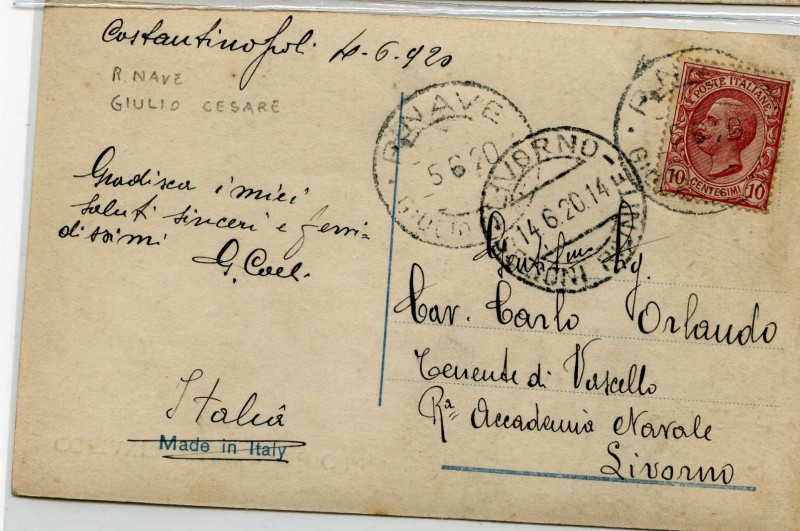 Costantinopoli 4-6-920
R. NAVE
GIULIO CESARE
Gradisca i miei
saluti sinceri e fervi-
dissimi
G.
Italia
Made in Italy
R. NAVE
5 6 20
GIULIO
LIVORNO
14.6.20.14
POSTE ITALIANE
10 CENTESIMI 10
Cav. Carlo Orlando
Tenente di Vascello
Rª Accademia Navale
Livorno